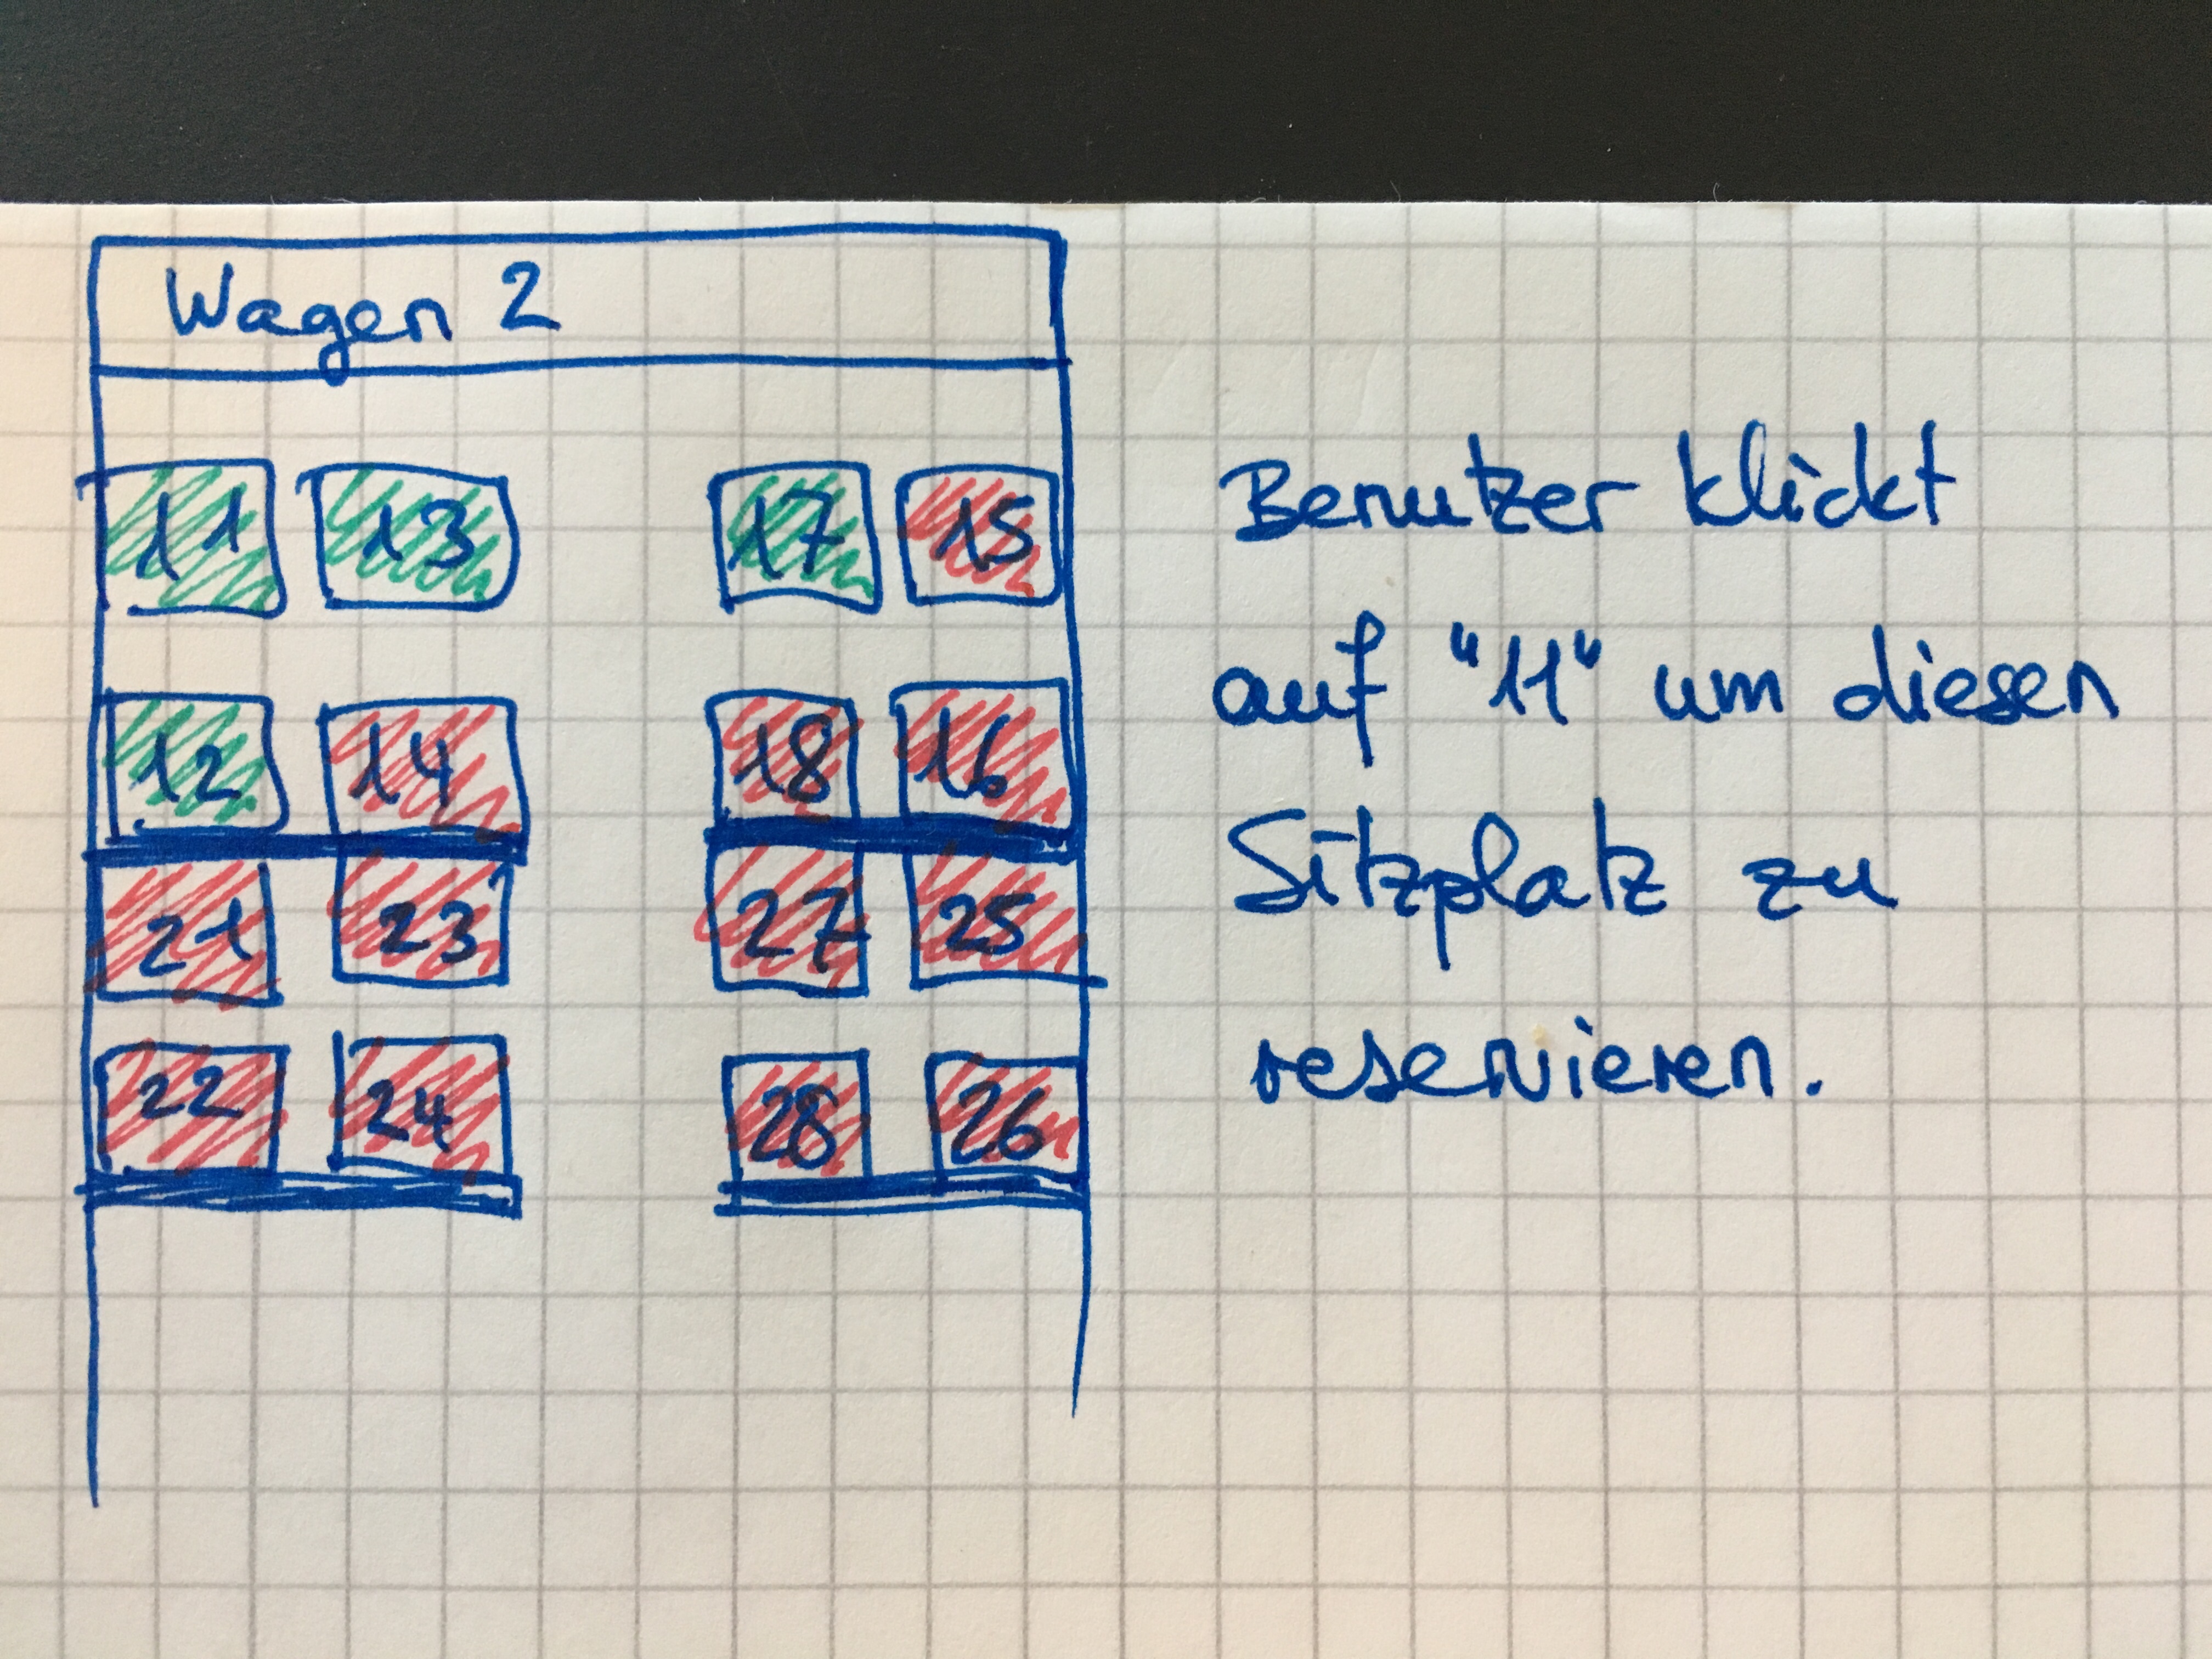 Wagen 2
11 13 17 15
12 14 18 16
21 23 27 25
22 24 28 26
Benutzer klickt
auf "11" um diesen
Sitzplatz zu
reservieren.